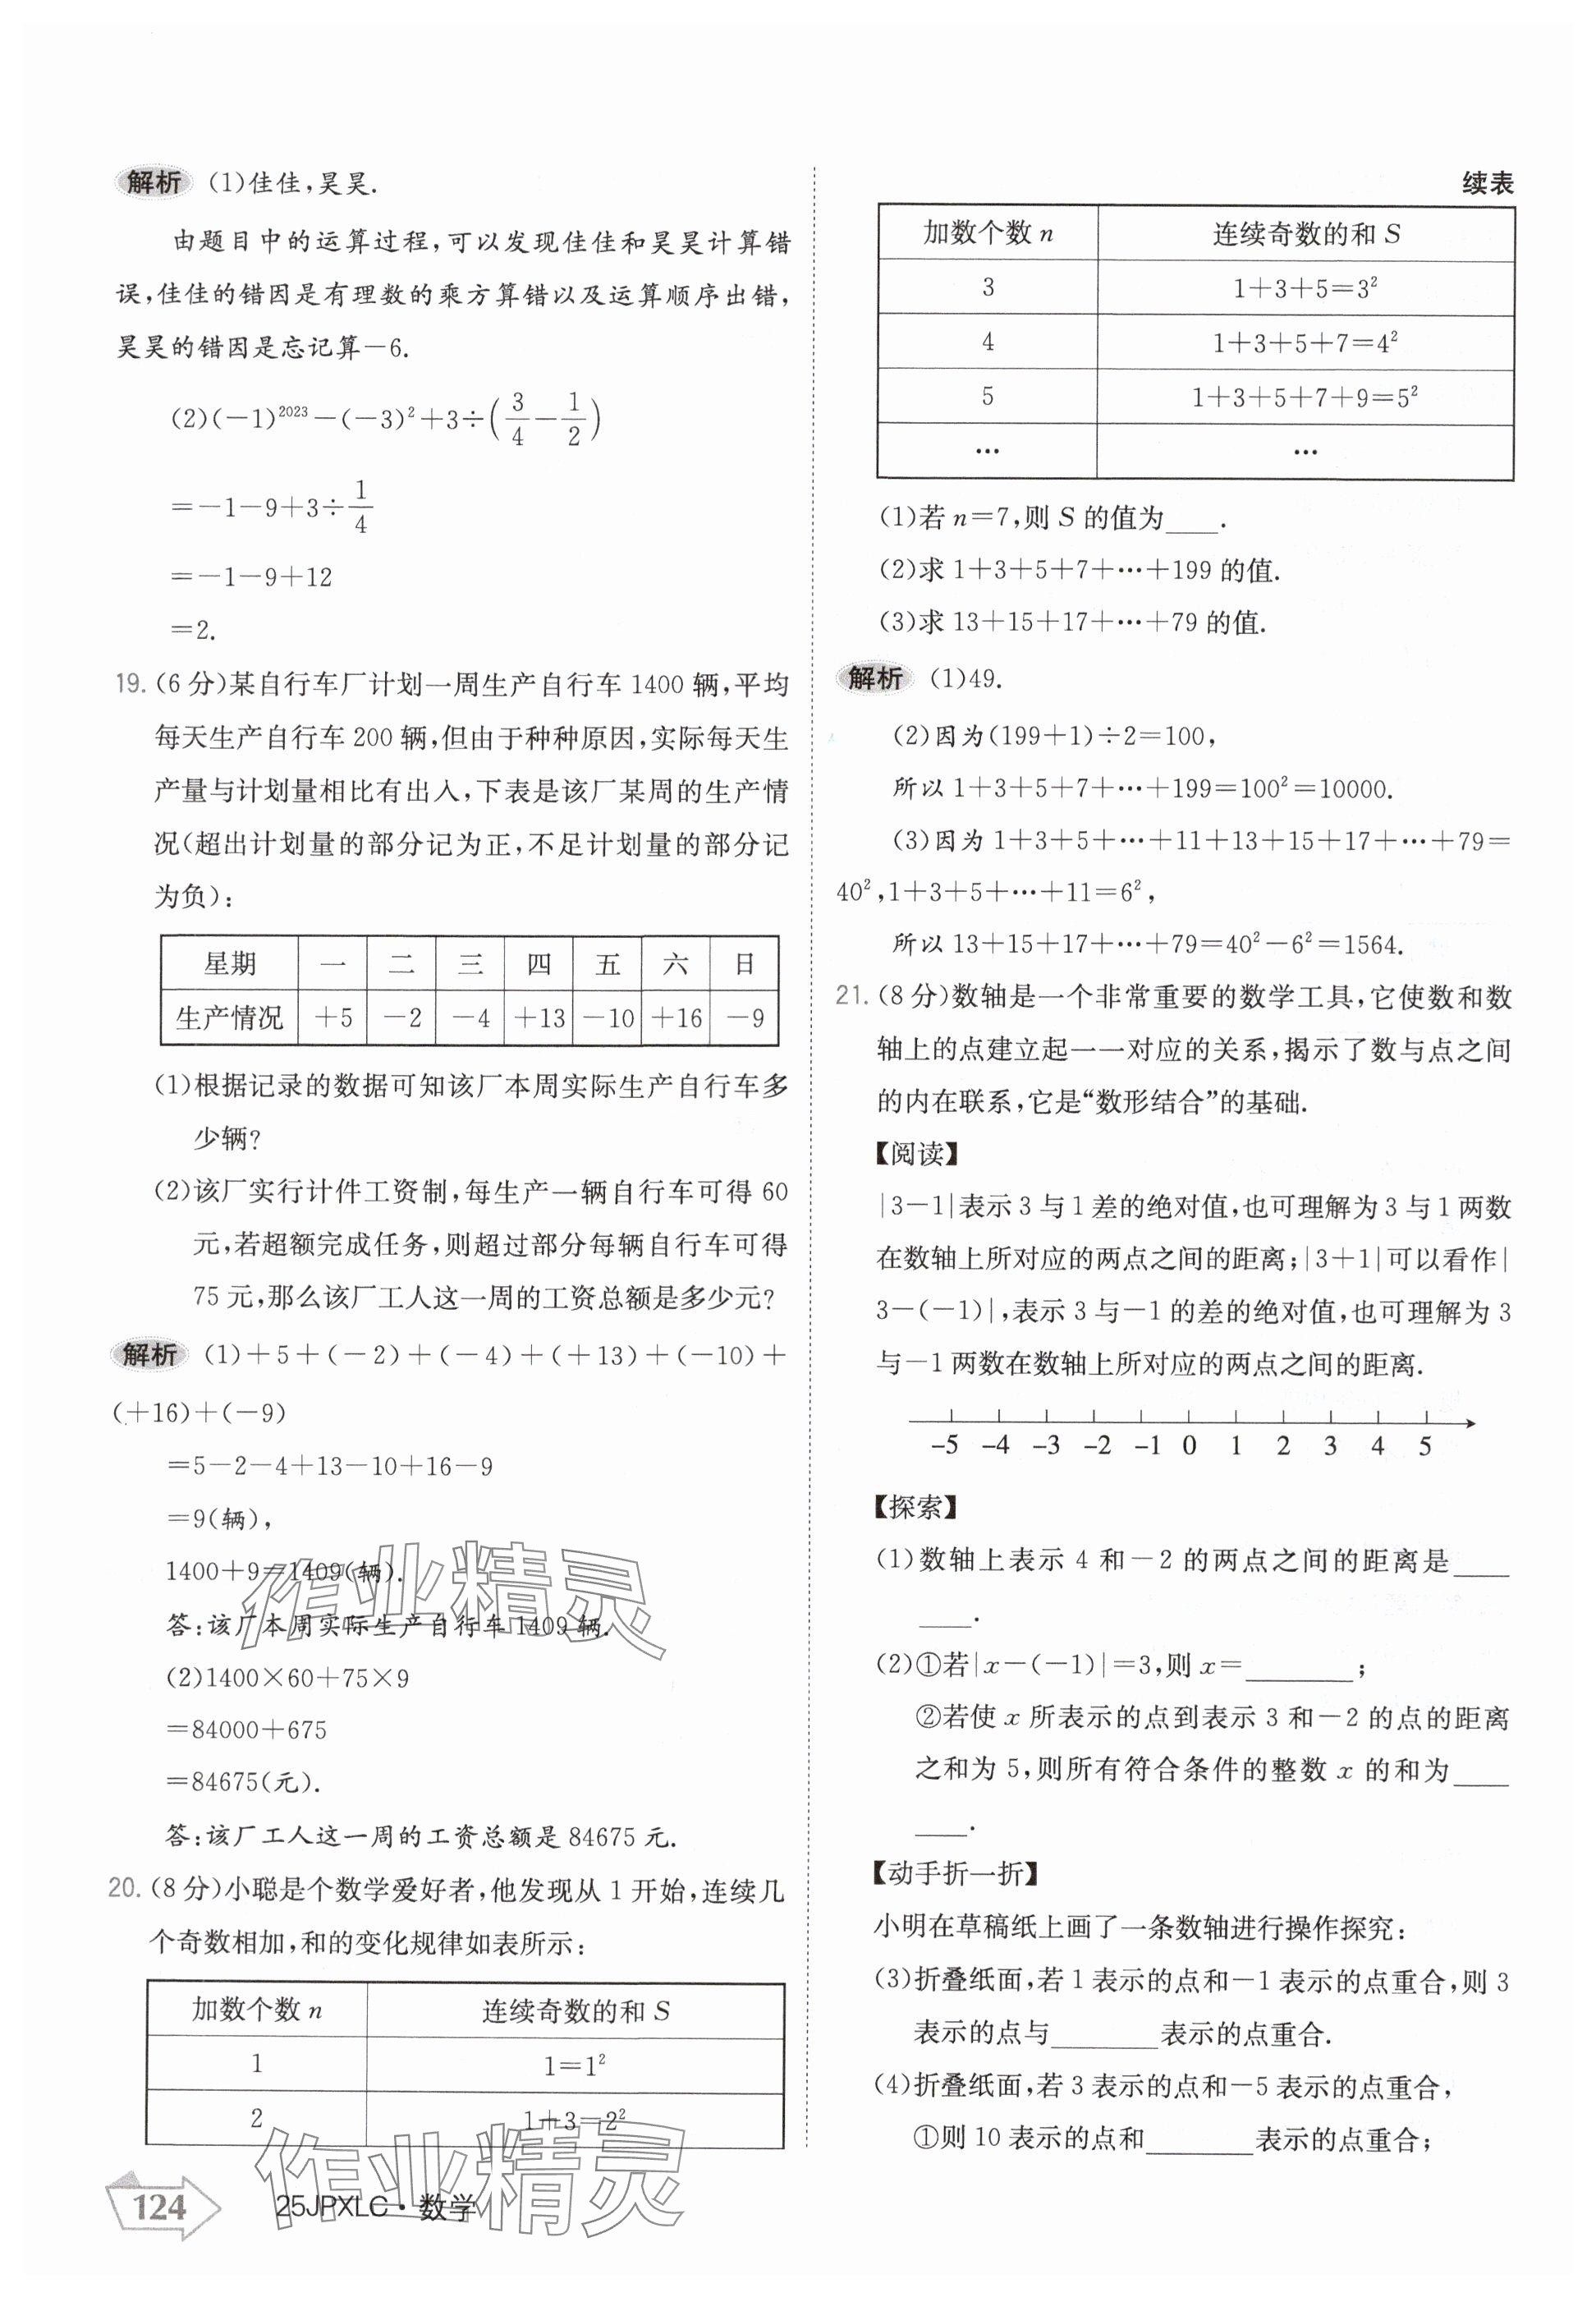 解析 (1)佳佳,昊昊.
由题目中的运算过程,可以发现佳佳和昊昊计算错
误,佳佳的错因是有理数的乘方算错以及运算顺序出错,
昊昊的错因是忘记算-6.
(2)(-1)²⁰²³-(-3)²+3÷(3/4-1/2)
=-1-9+3÷1/4
=-1-9+12
=2.
19.(6分)某自行车厂计划一周生产自行车1400辆,平均
每天生产自行车200辆,但由于种种原因,实际每天生
产量与计划量相比有出入,下表是该厂某周的生产情
况(超出计划量的部分记为正,不足计划量的部分记
为负):
星期 一 二 三 四 五 六 日
生产情况 +5 -2 -4 +13 -10 +16 -9
(1)根据记录的数据可知该厂本周实际生产自行车多
少辆?
(2)该厂实行计件工资制,每生产一辆自行车可得60
元,若超额完成任务,则超过部分每辆自行车可得
75元,那么该厂工人这一周的工资总额是多少元?
解析 (1)+5+(-2)+(-4)+(+13)+(-10)+
(+16)+(-9)
=5-2-4+13-10+16-9
=9(辆),
1400+9=1409(辆).
答:该厂本周实际生产自行车1409辆.
(2)1400×60+75×9
=84000+675
=84675(元).
答:该厂工人这一周的工资总额是84675元.
20.(8分)小聪是个数学爱好者,他发现从1开始,连续几
个奇数相加,和的变化规律如表所示:
加数个数n 连续奇数的和S
1 1=1²
2 1+3=2²
作业精灵
作业精灵
124 25JPXLC·数学
续表
加数个数n 连续奇数的和S
3 1+3+5=3²
4 1+3+5+7=4²
5 1+3+5+7+9=5²
… …
(1)若n=7,则S的值为____.
(2)求1+3+5+7+…+199的值.
(3)求13+15+17+…+79的值.
解析 (1)49.
(2)因为(199+1)÷2=100,
所以1+3+5+7+…+199=100²=10000.
(3)因为1+3+5+…+11+13+15+17+…+79=
40²,1+3+5+…+11=6²,
所以13+15+17+…+79=40²-6²=1564.
21.(8分)数轴是一个非常重要的数学工具,它使数和数
轴上的点建立起一一对应的关系,揭示了数与点之间
的内在联系,它是“数形结合”的基础.
【阅读】
|3-1|表示3与1差的绝对值,也可理解为3与1两数
在数轴上所对应的两点之间的距离;|3+1|可以看作|
3-(-1)|,表示3与-1的差的绝对值,也可理解为3
与-1两数在数轴上所对应的两点之间的距离.
-5 -4 -3 -2 -1 0 1 2 3 4 5
【探索】
(1)数轴上表示4和-2的两点之间的距离是____
____.
(2)①若|x-(-1)|=3,则x=________;
②若使x所表示的点到表示3和-2的点的距离
之和为5,则所有符合条件的整数x的和为____
____.
【动手折一折】
小明在草稿纸上画了一条数轴进行操作探究:
(3)折叠纸面,若1表示的点和-1表示的点重合,则3
表示的点与________表示的点重合.
(4)折叠纸面,若3表示的点和-5表示的点重合,
①则10表示的点和________表示的点重合;